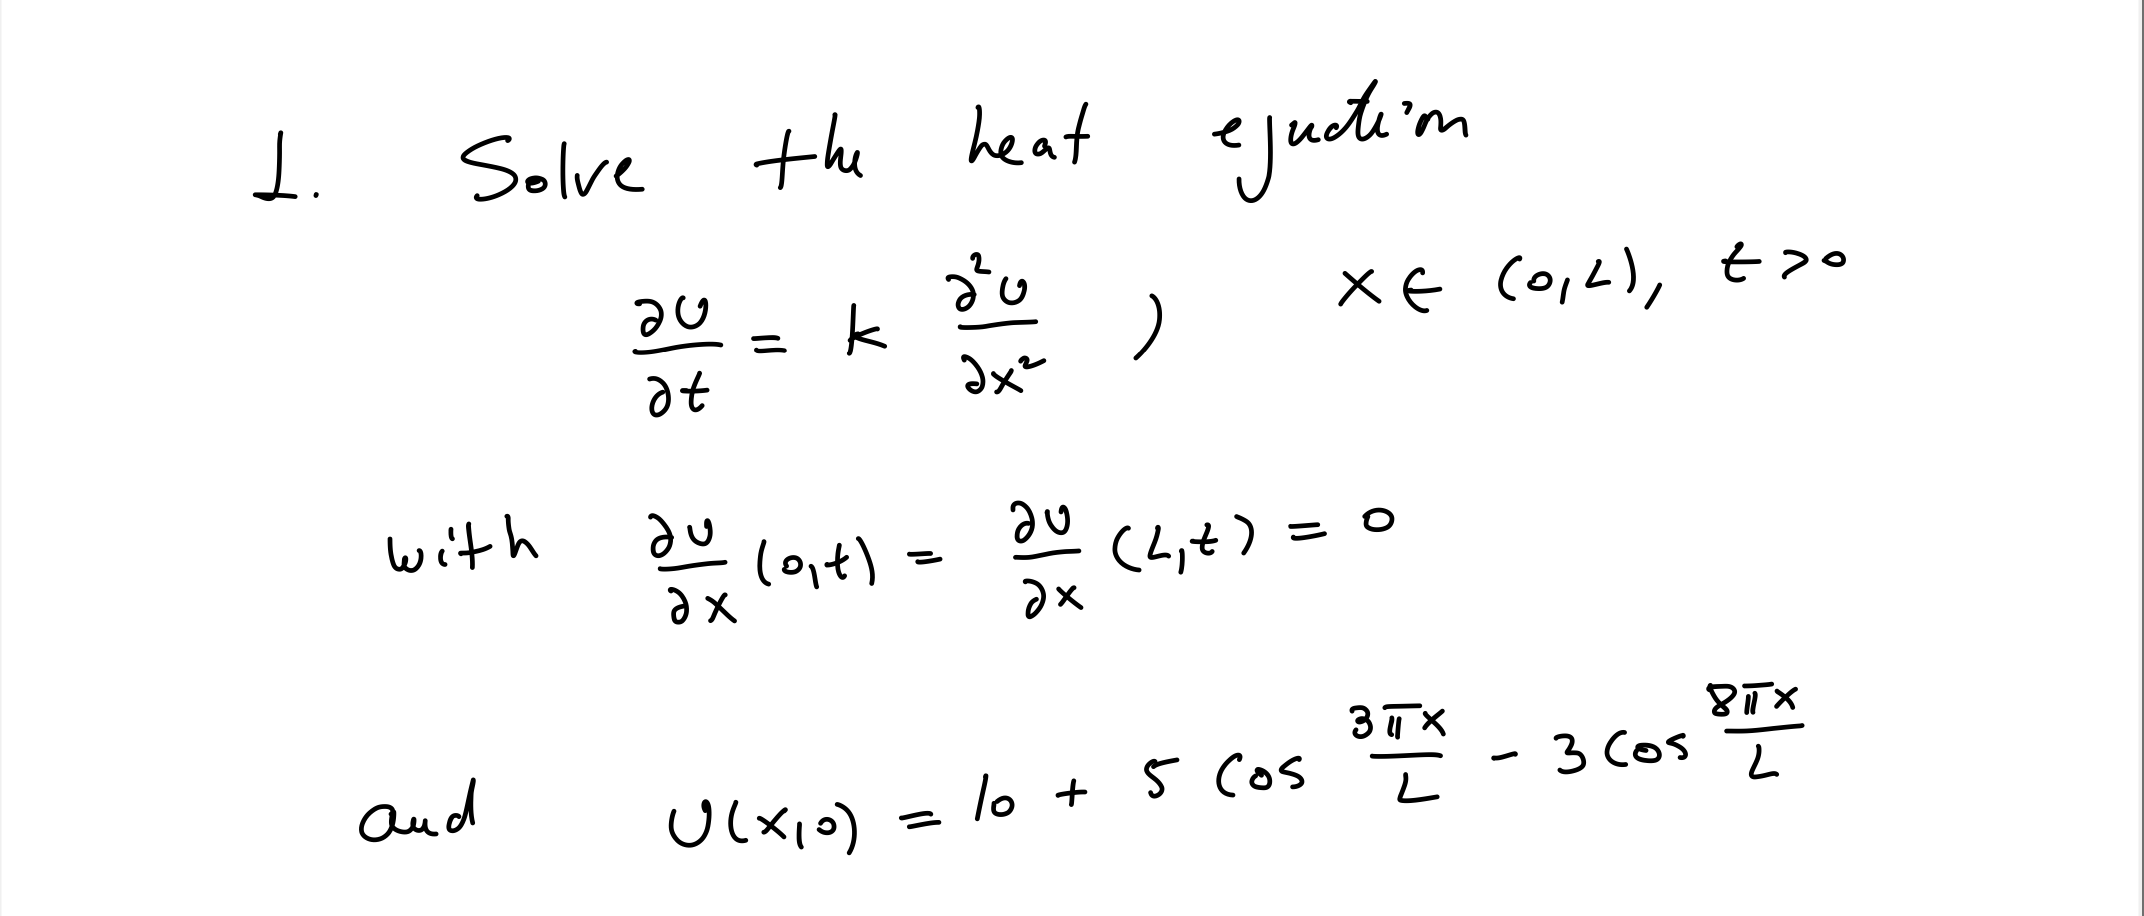 1. Solve the heat equation
∂U/∂t = k ∂²U/∂x² , x ∈ (0,L), t>0
with ∂U/∂x (0,t) = ∂U/∂x (L,t) = 0
and U(x,0) = 10 + 5 cos 3πx/L - 3 cos 8πx/L